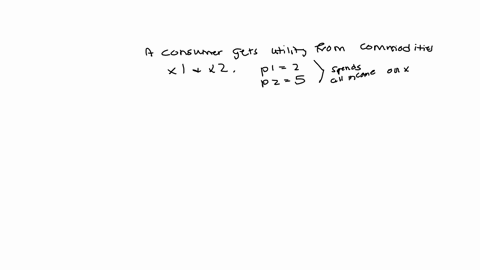 A consumer gets utility from commodities
x1 + x2. p1 = 2
p2 = 5
spends
all income on x